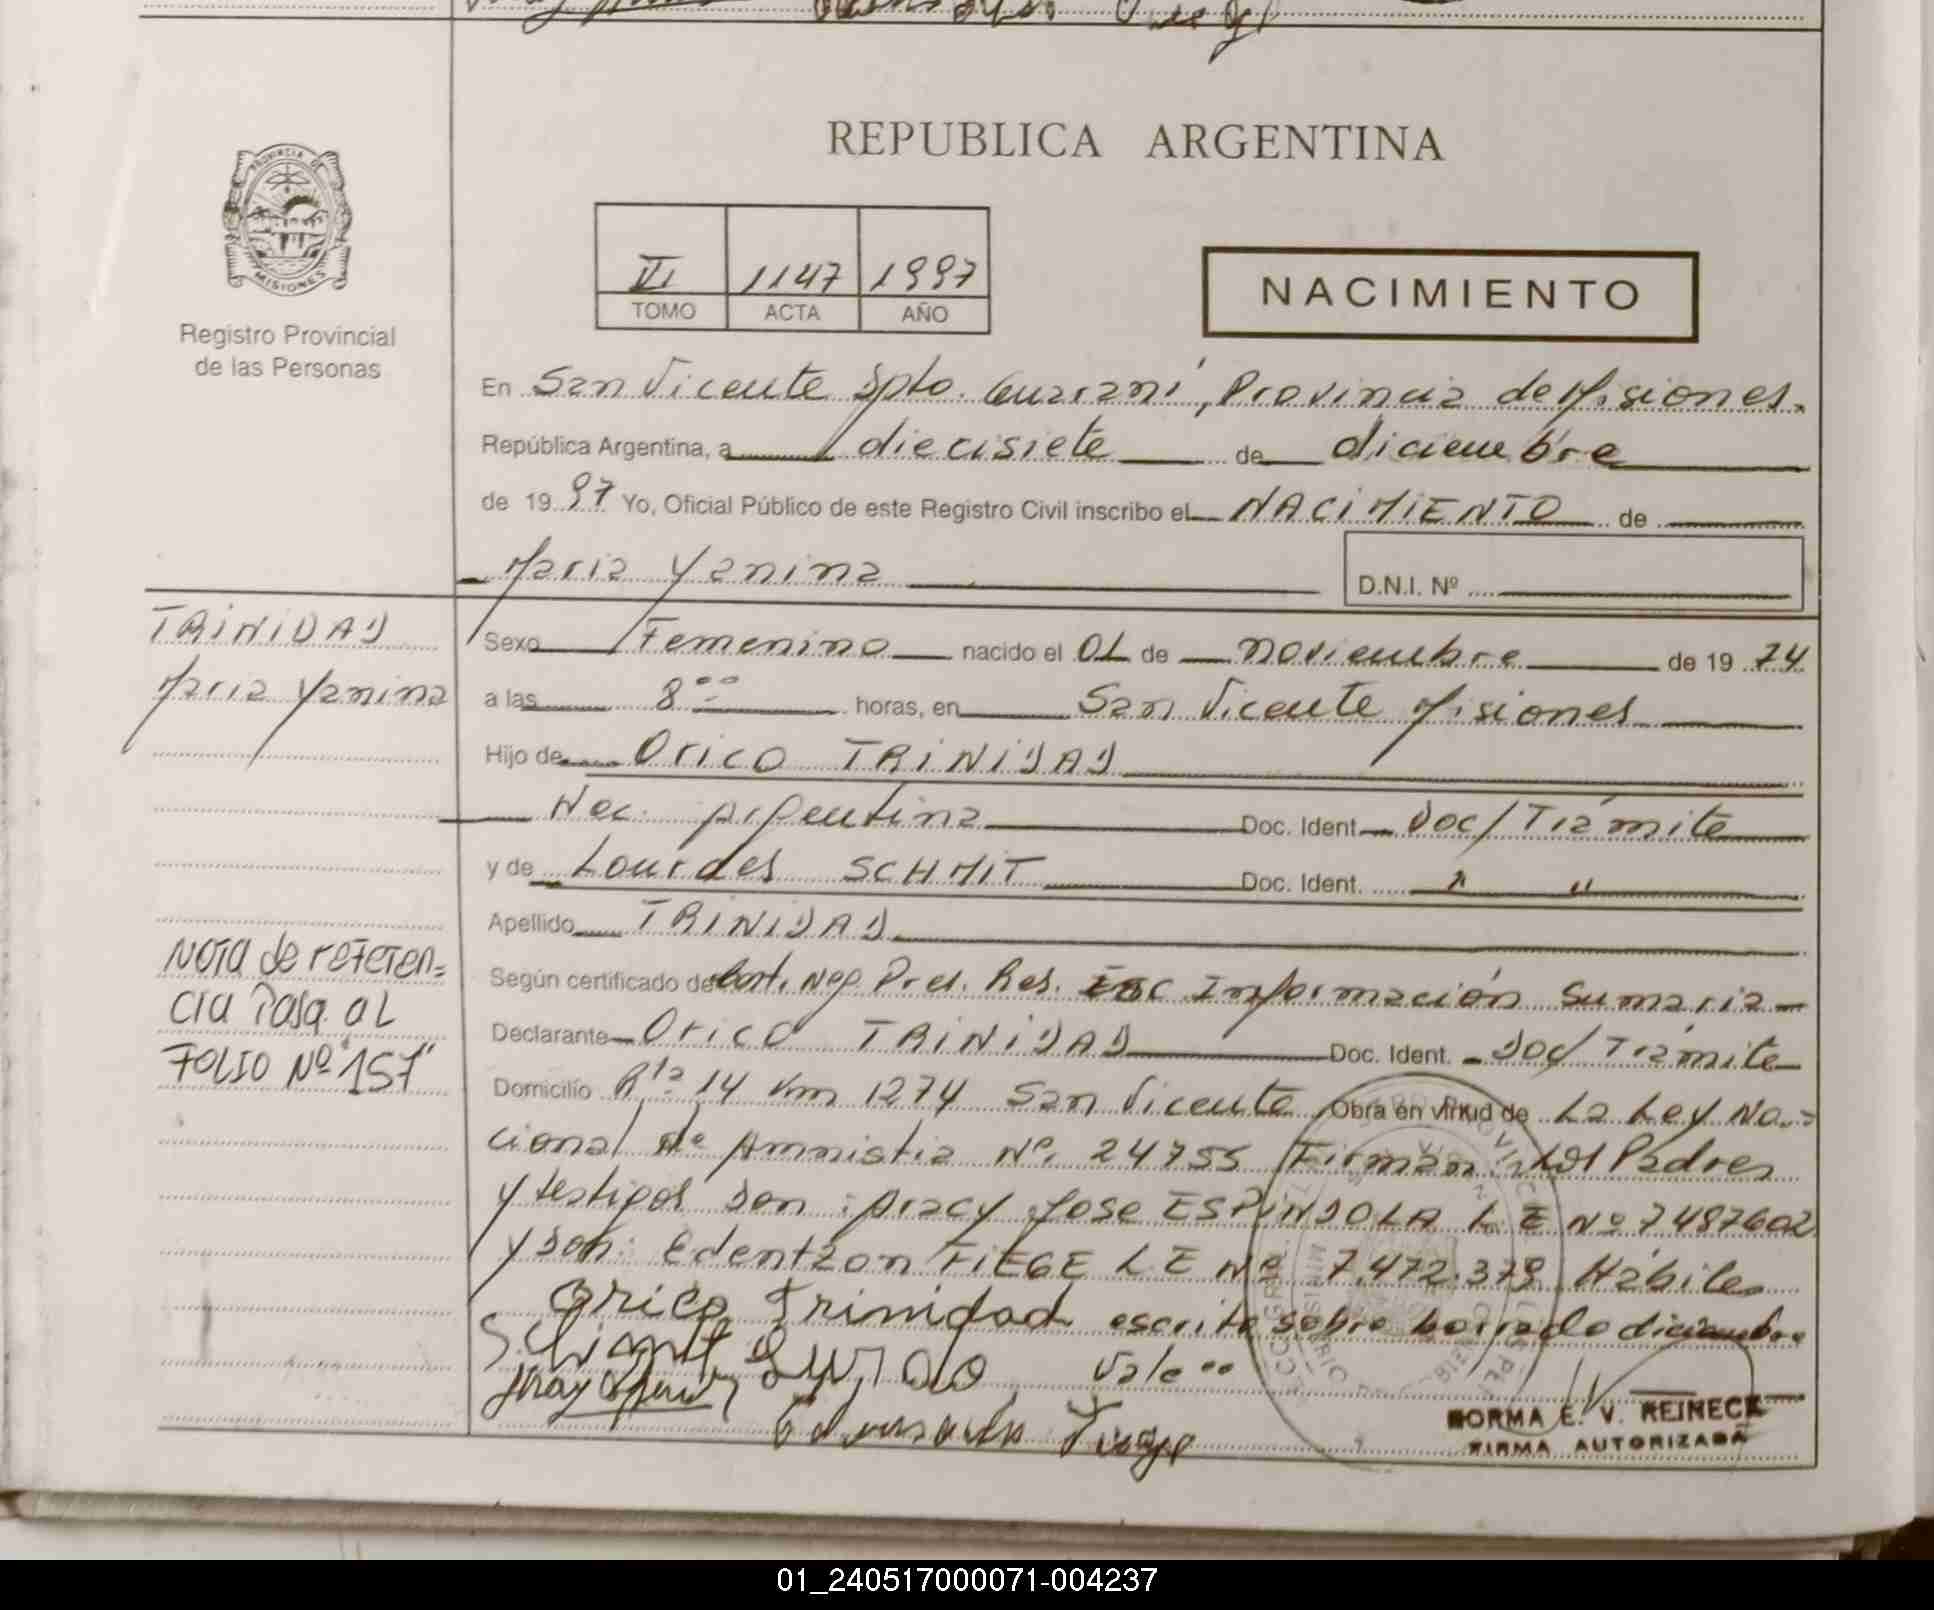 REPUBLICA ARGENTINA
PROVINCIA DE
MISIONES
Registro Provincial
de las Personas
VI 1147 1997
TOMO ACTA AÑO
NACIMIENTO
En San Vicente Dpto. Guaraní, Provincia de Misiones.
República Argentina, a diecisiete de diciembre
de 1997 Yo, Oficial Público de este Registro Civil inscribo el NACIMIENTO de
Maria Yanina D.N.I. Nº
TRINIDAD
Maria Yanina
Sexo Femenino nacido el 01 de noviembre de 1974
a las 8 ºº horas, en San Vicente Misiones
Hijo de Orico TRINIDAD
Nac. Argentina Doc. Ident. Doc/Trámite
y de Lourdes SCHMIT Doc. Ident. " "
Apellido TRINIDAD
NOTA de referen=
cia Pasa al
FOLIO Nº "157"
Según certificado de Cert. Neg. Pres. Res. Inf Información Sumaria
Declarante Orico TRINIDAD Doc. Ident. Doc/Trámite
Domicilio Rta 14 Km 1274 San Vicente Obra en virtud de La Ley Na.=
cional de Amnistia Nº 24755 Firman los Padres
y testigos Don: Aracy Jose ESPINDOLA L E Nº 7487602
y Don: Edentzon FIEGE L E Nº 7.472.379 Hábiles
Orico Trinidad escrito sobre borrado diciembre
Vale
NORMA E. V. REINECK
FIRMA AUTORIZADA
01_240517000071-004237